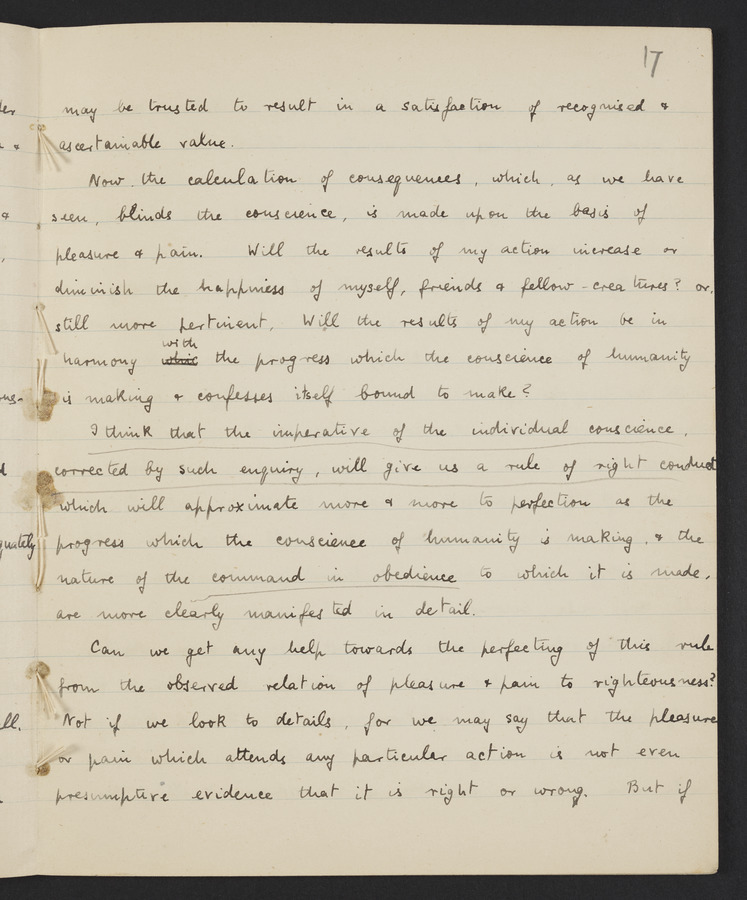 17
may be trusted to result in a satisfaction of recognised &
ascertainable value.
Now, the calculation of consequences, which, as we have
seen, blinds the conscience, is made upon the basis of
pleasure & pain. Will the results of my action increase or
diminish the happiness of myself, friends & fellow-creatures? or,
still more pertinent, Will the results of my action be in
with
harmony the progress which the conscience of humanity
is making & confesses itself bound to make?
I think that the imperative of the individual conscience,
corrected by such enquiry, will give us a rule of right conduct
which will approximate more & more to perfection as the
progress which the conscience of humanity is making, & the
nature of the command in obedience to which it is made,
are more clearly manifested in detail.
Can we get any help towards the perfecting of this rule
from the observed relation of pleasure & pain to righteousness?
Not if we look to details, for we may say that the pleasure
or pain which attends any particular action is not even
presumptive evidence that it is right or wrong. But if